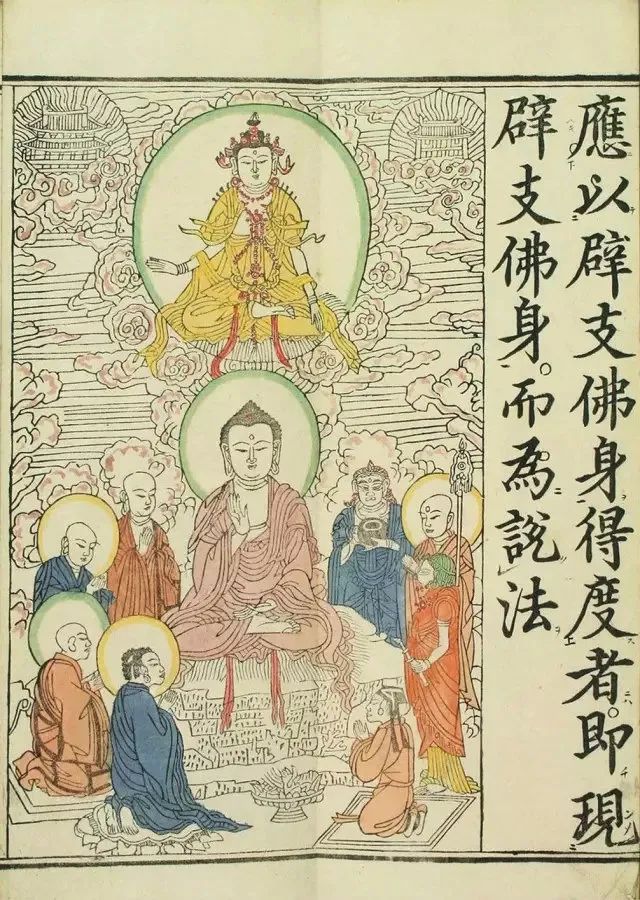 應以辟支佛身得度者。即現
辟支佛身。而為說法